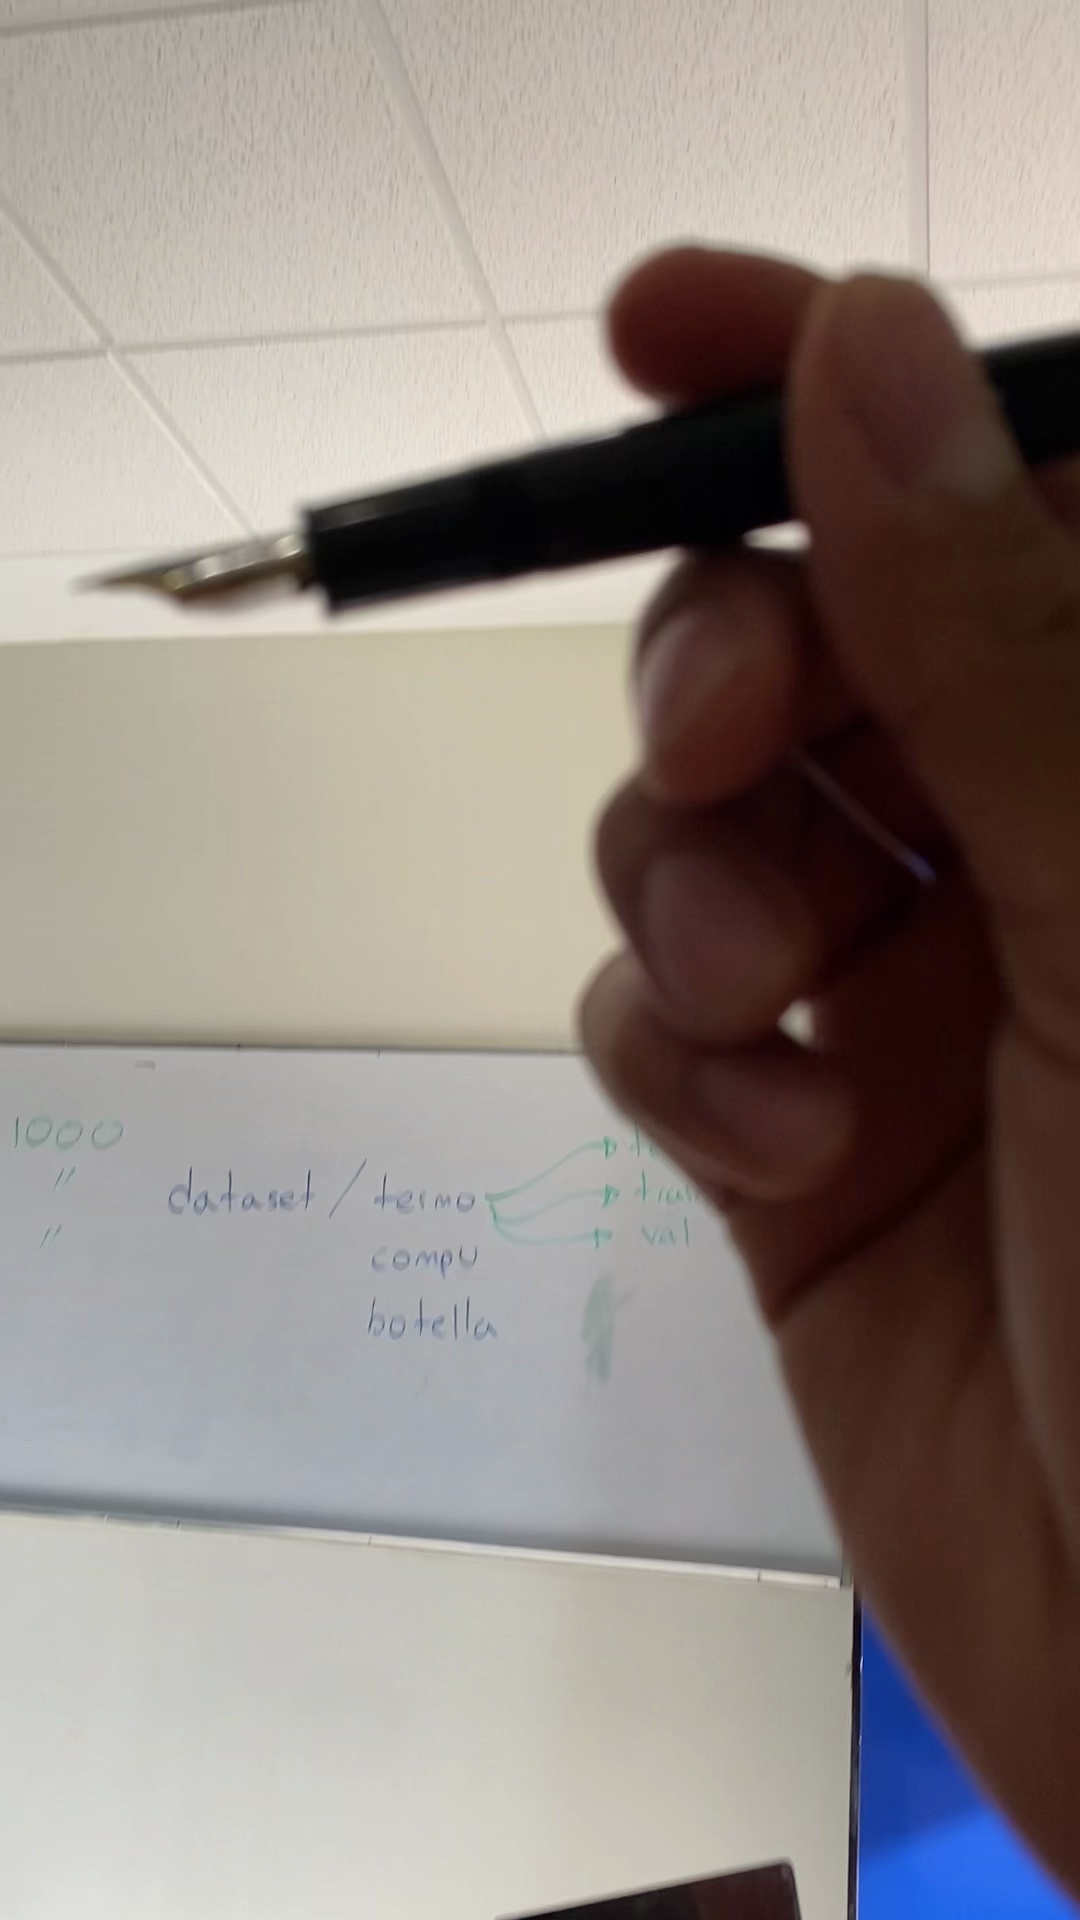 1000
"
"
dataset / termo
compu
botella
val